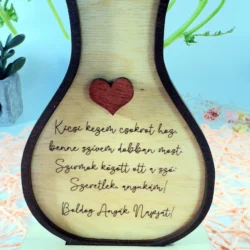 Kicsi kezem csokrot hoz,
benne szívem dobban most.
Szirmok között ott a szó:
Szeretlek anyukám!
Boldog Anyák Napját!